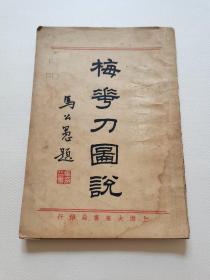 梅花刀圖說
馬公愚題
上海大東書局發行